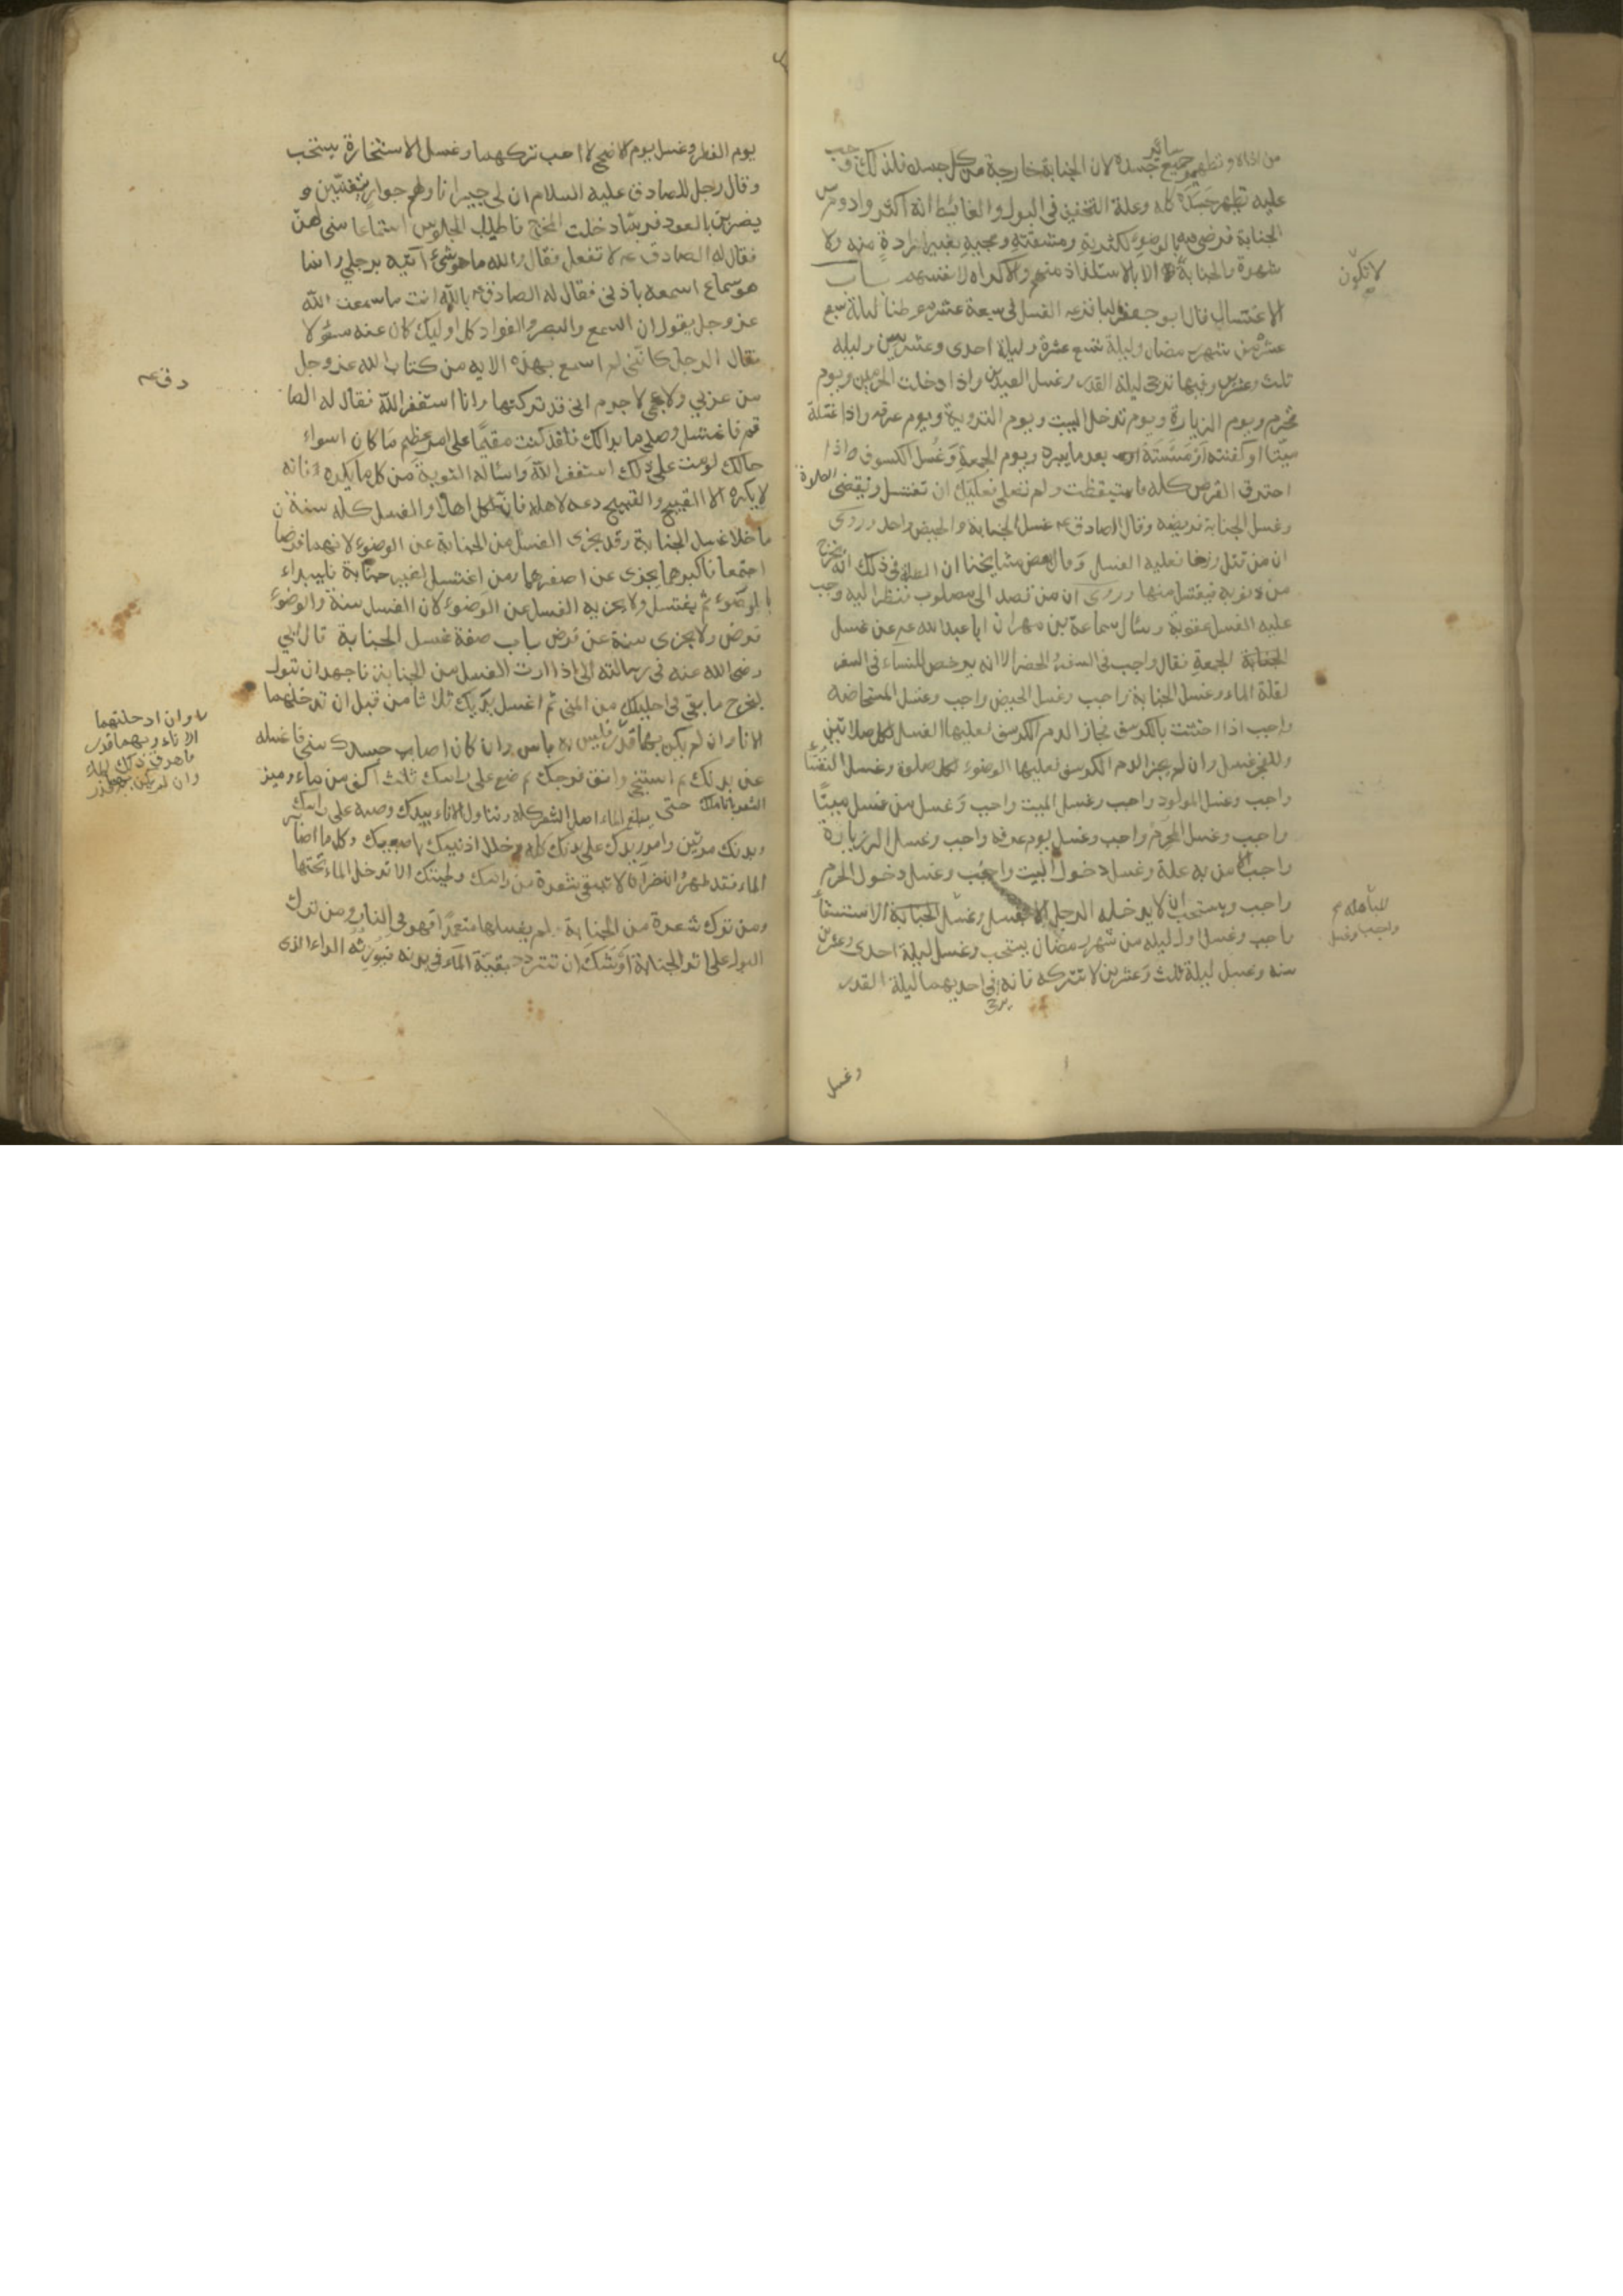 من اذاه وتطهير جميع سائر جسده لان الجنابة خارجة من كل جسده فلذلك وجب
عليه تطهر جسده كله وعلة التخفيف في البول والغائط انه اكثر وادوم من
الجنابة فرضي فيه بالوضوء لكثرته ومشقته ومجيه بغير ارادة منه ولا
شهوة والجنابة لا الا بالاستلذاذ منهم والاكراه لانفسهم باب
لا تكون
الاغتسال قال ابو جعفر الباقر عه الغسل في سبعة عشر موطنا ليلة سبع
عشرة من شهر رمضان وليلة تسع عشرة وليلة احدى وعشرين وليلة
ثلث وعشرين وفيها ترجى ليلة القدر وغسل العيدين واذا دخلت الحرمين ويوم
تحرم ويوم الزيارة ويوم تدخل البيت ويوم التروية ويوم عرفه واذا غسلة
ميتا او كفنته او مسسته بعد ما يبرد ويوم الجمعة وغسل الكسوف اذا
احترق القرص كله فاستيقظت ولم تصلي فعليك ان تغتسل وتقضى الصلوة
وغسل الجنابة فريضه وقال الصادق عه غسل الجنابة والحيض واحد وروى
ان من قتل وزغا فعليه الغسل وقال بعض مشايخنا ان العلة في ذلك انه يخرج
من ذنوبه فيغتسل منها وروى ان من قصد الى مصلوب فنظر اليه وجب
عليه الغسل عقوبة وسئال سماعة بن مهران ابا عبد الله عه عن غسل
الجنابة الجمعة فقال واجب في السفر والحضر الا انه يرخص للنساء في السفر
لقلة الماء وغسل الجنابة واجب وغسل الحيض واجب وغسل المستحاضه
واجب اذا احتشت بالكرسف فجاز الدم الكرسف فعليها الغسل لكل صلاتين
وللفجر غسل وان لم يجز الدم الكرسف فعليها الوضوء لكل صلوة وغسل النفساء
واجب وغسل المولود واجب وغسل الميت واجب وغسل من غسل ميتا
واجب وغسل المحرم واجب وغسل يوم عرفه واجب وغسل الزيارة
واجب الا من به علة وغسل دخول البيت واجب وغسل دخول الحرم
واجب ويستحب ان لا يدخله الرجل الا بغسل وغسل الاستسقاء
المباهله
واجب وغسل
واجب وغسل اول ليله من شهر رمضان يستحب وغسل ليلة احدى وعشرين
سنه وغسل ليلة ثلث وعشرين لا تتركه فانه يرجى في احديهما ليلة القدر
وغسل
يوم الفطر وغسل يوم الاضحى لا احب تركهما وغسل الاستخارة يستحب
وقال رجل للصادق عليه السلام ان لي جيرانا ولهم جوار يتغنين و
يضربن بالعود فربما دخلت المخرج فاطيل الجلوس استماعا منى لهن
فقال له الصادق عه لا تفعل فقال والله ما هو شئ اتيه برجلي وانما
هو سماع اسمعه باذني فقال له الصادق عه بالله انت ما سمعت الله
عز وجل يقول ان السمع والبصر والفواد كل اوليك كان عنه مسؤلا
فقال الرجل كانني لم اسمع بهذه الايه من كتاب الله عز وجل
من عربي ولا عجمي لا جرم اني قد تركتها وانا استغفر الله فقال له الصا
دق عه
قم فاغتسل وصلي ما بدالك فلقد كنت مقيما على امر عظيم ما كان اسواء
حالك لو مت على ذلك استغفر الله واساله التوبة من كل ما يكره فانه
لا يكره الا القبيح والقبيح دعه لاهله فان لكل اهلا والغسل كله سنة
ما خلا غسل الجنابة وقد يجزى الغسل من الجنابة عن الوضوء لانهما فرضا
اجتمعا فاكبرهما يجزى عن اصغرهما ومن اغتسل لغير جنابة فليبداء
بالوضوء ثم يغتسل ولا يجزيه الغسل عن الوضوء لان الغسل سنة والوضوء
فرض ولا يجزى سنة عن فرض باب صفة غسل الجنابة قال ابي
رضي الله عنه في رسالته الي اذا اردت الغسل من الجنابة فاجهد ان تبول
ليخرج ما بقى في احليلك من المنى ثم اغسل يديك ثلاثا من قبل ان تدخلهما
الاناء وان لم يكن بهما قذر فليس به باس وان كان اصاب جسدك منى فاغسله
وان ادخلتهما
الاناء وبهما قذر
فاهرق ذلك الماء
وان لم يكن بهما قذر
عن بدنك ثم استنج وانق فرجك ثم ضع على راسك ثلث اكف من ماء وميز
الشعر باناملك حتى يبلغ الماء اصل الشعر كله وتناول الاناء بيدك وصبه على راسك
وبدنك مرتين وامرر يدك على بدنك كله وخلل اذنيك باصبعيك وكل ما اصابه
الماء فقد طهر وانظر ان لا تبقى شعرة من راسك ولحيتك الا تدخل الماء تحتها
ومن ترك شعرة من الجنابة لم يغسلها متعمدا فهو في النار ومن ترك
البول على اثر الجنابة اوشك ان تتردد بقية الماء في بدنه فيورثه الداء الذى